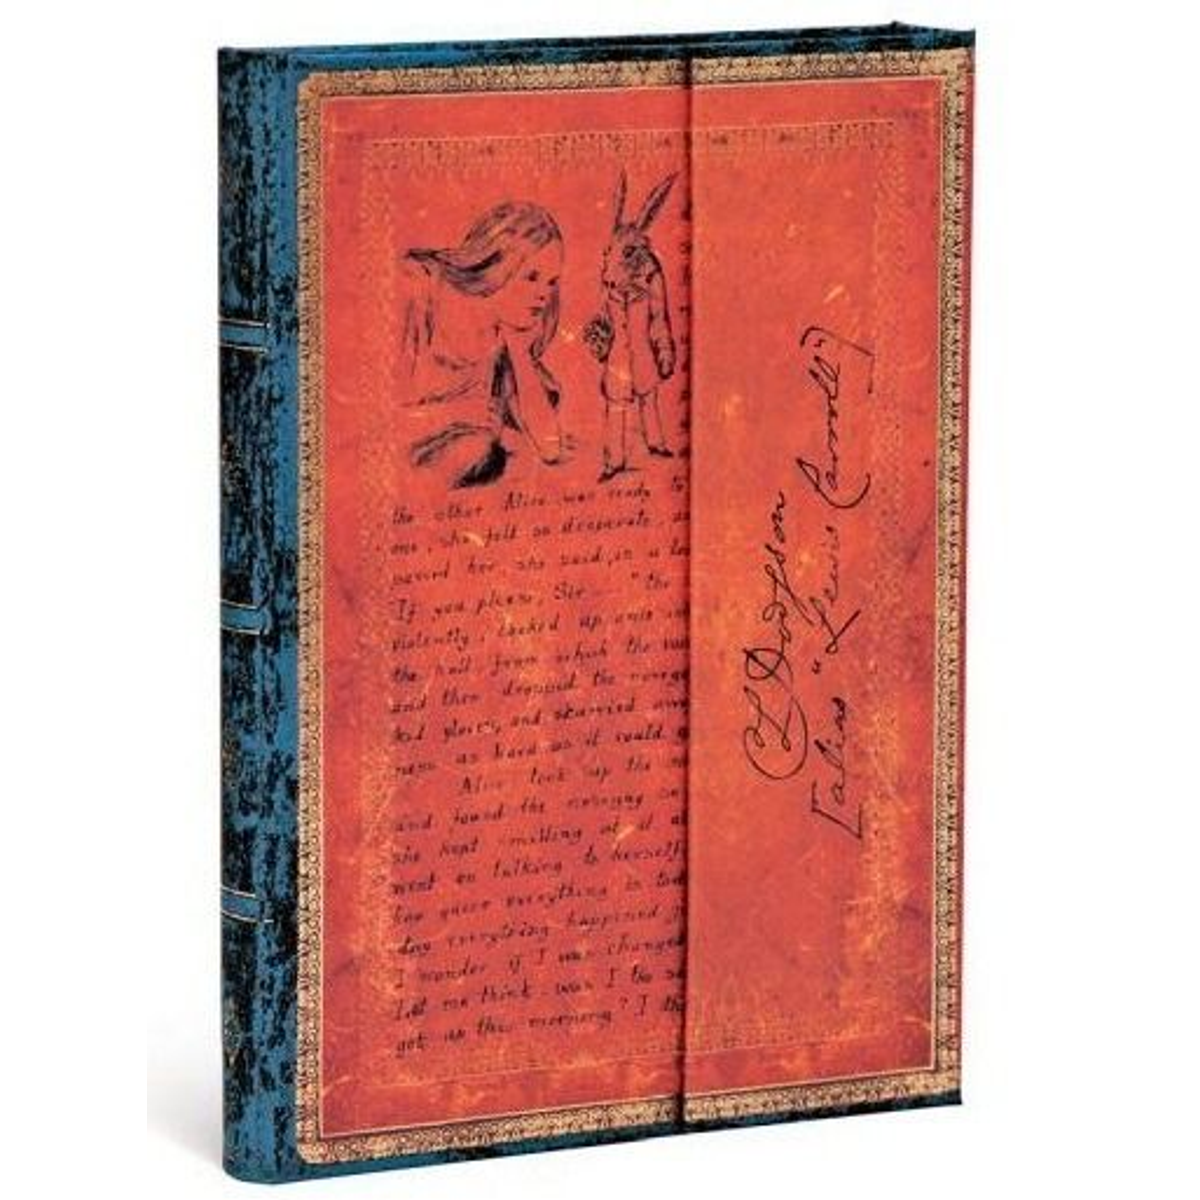 the other Alice was ready to
one, she felt so desperate, as
passed her, she said, in a lo
If you please, Sir— "the
violently, looked up once in
the hall, from which the voi
and then dropped the nosega
kid gloves, and skurried awa
ness as hard as it could g
Alice took up the no
and found the nosegay so
she kept smelling at it al
went on talking to herself
how queer everything is tod
day everything happened j
I wonder if I was changed
Let me think: was I the sa
got up this morning? I th
C L Dodgson
[alias "Lewis Carroll"]